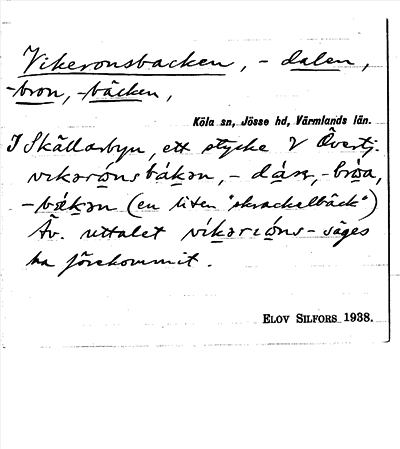 Vikeronsbacken, -dalen,
-bron, -bäcken,
Köla sn, Jösse hd, Värmlands län.
I Skällarbyn, ett stycke V Övertj.
vikarónsbákan, -dáṇ, -bróa,
-bǽkan (en liten "skrackelbäck")
Äv. uttalet víkəróns- säges
ha förekommit.
ELOV SILFORS 1938.